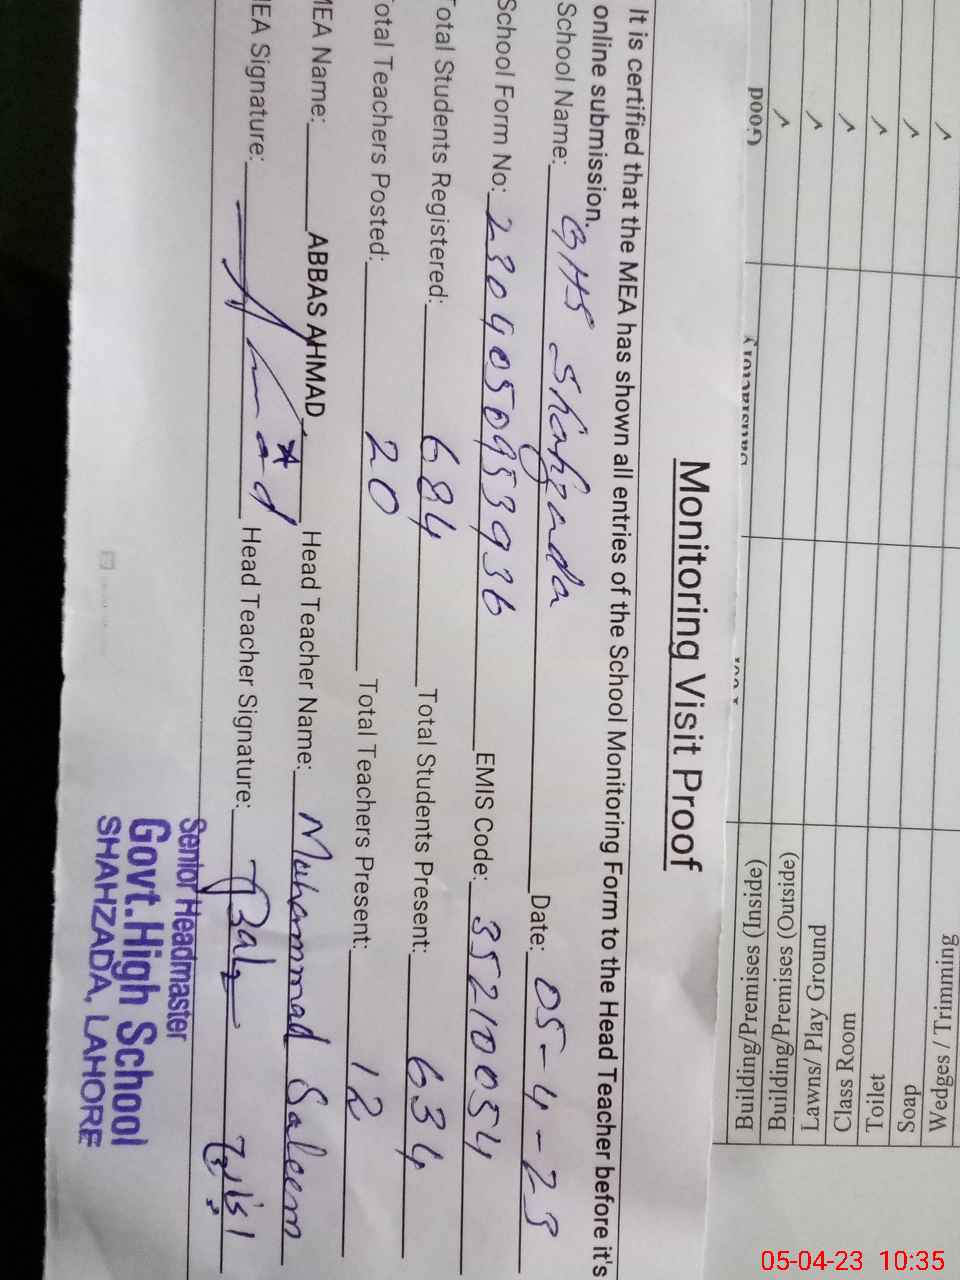 Monitoring Visit Proof
It is certified that the MEA has shown all entries of the School Monitoring Form to the Head Teacher before it's
online submission.
School Name: GHS Shahzada Date: 05-4-23
School Form No: 2304050953936 EMIS Code: 35210054
Total Students Registered: 684 Total Students Present: 634
Total Teachers Posted: 20 Total Teachers Present: 12
MEA Name: ABBAS AHMAD Head Teacher Name: Muhammad Saleem
MEA Signature: Head Teacher Signature:
Senior Headmaster
Govt.High School
SHAHZADA, LAHORE
Good
Building/Premises (Inside)
Building/Premises (Outside)
Lawns/ Play Ground
Class Room
Toilet
Soap
Wedges / Trimming
05-04-23 10:35